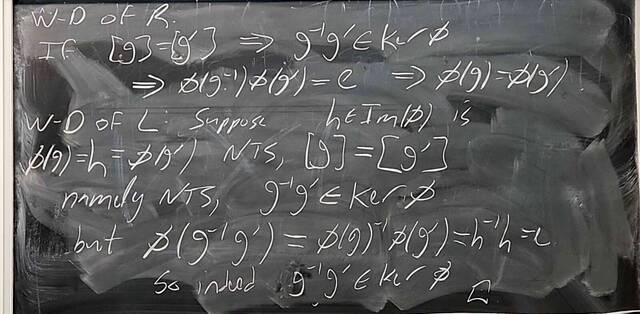 W-D OF R:
If [g]=[g'] ⇒ g⁻¹g' ∈ Ker ϕ
⇒ ϕ(g⁻¹)ϕ(g') = e ⇒ ϕ(g)=ϕ(g')
W-D OF L: Suppose h∈Im(ϕ) is
ϕ(g)=h=ϕ(g') NTS, [g]=[g']
namely NTS, g⁻¹g' ∈ Ker ϕ
but ϕ(g⁻¹g') = ϕ(g)⁻¹ϕ(g')=h⁻¹h=e
so indeed g⁻¹g' ∈ Ker ϕ